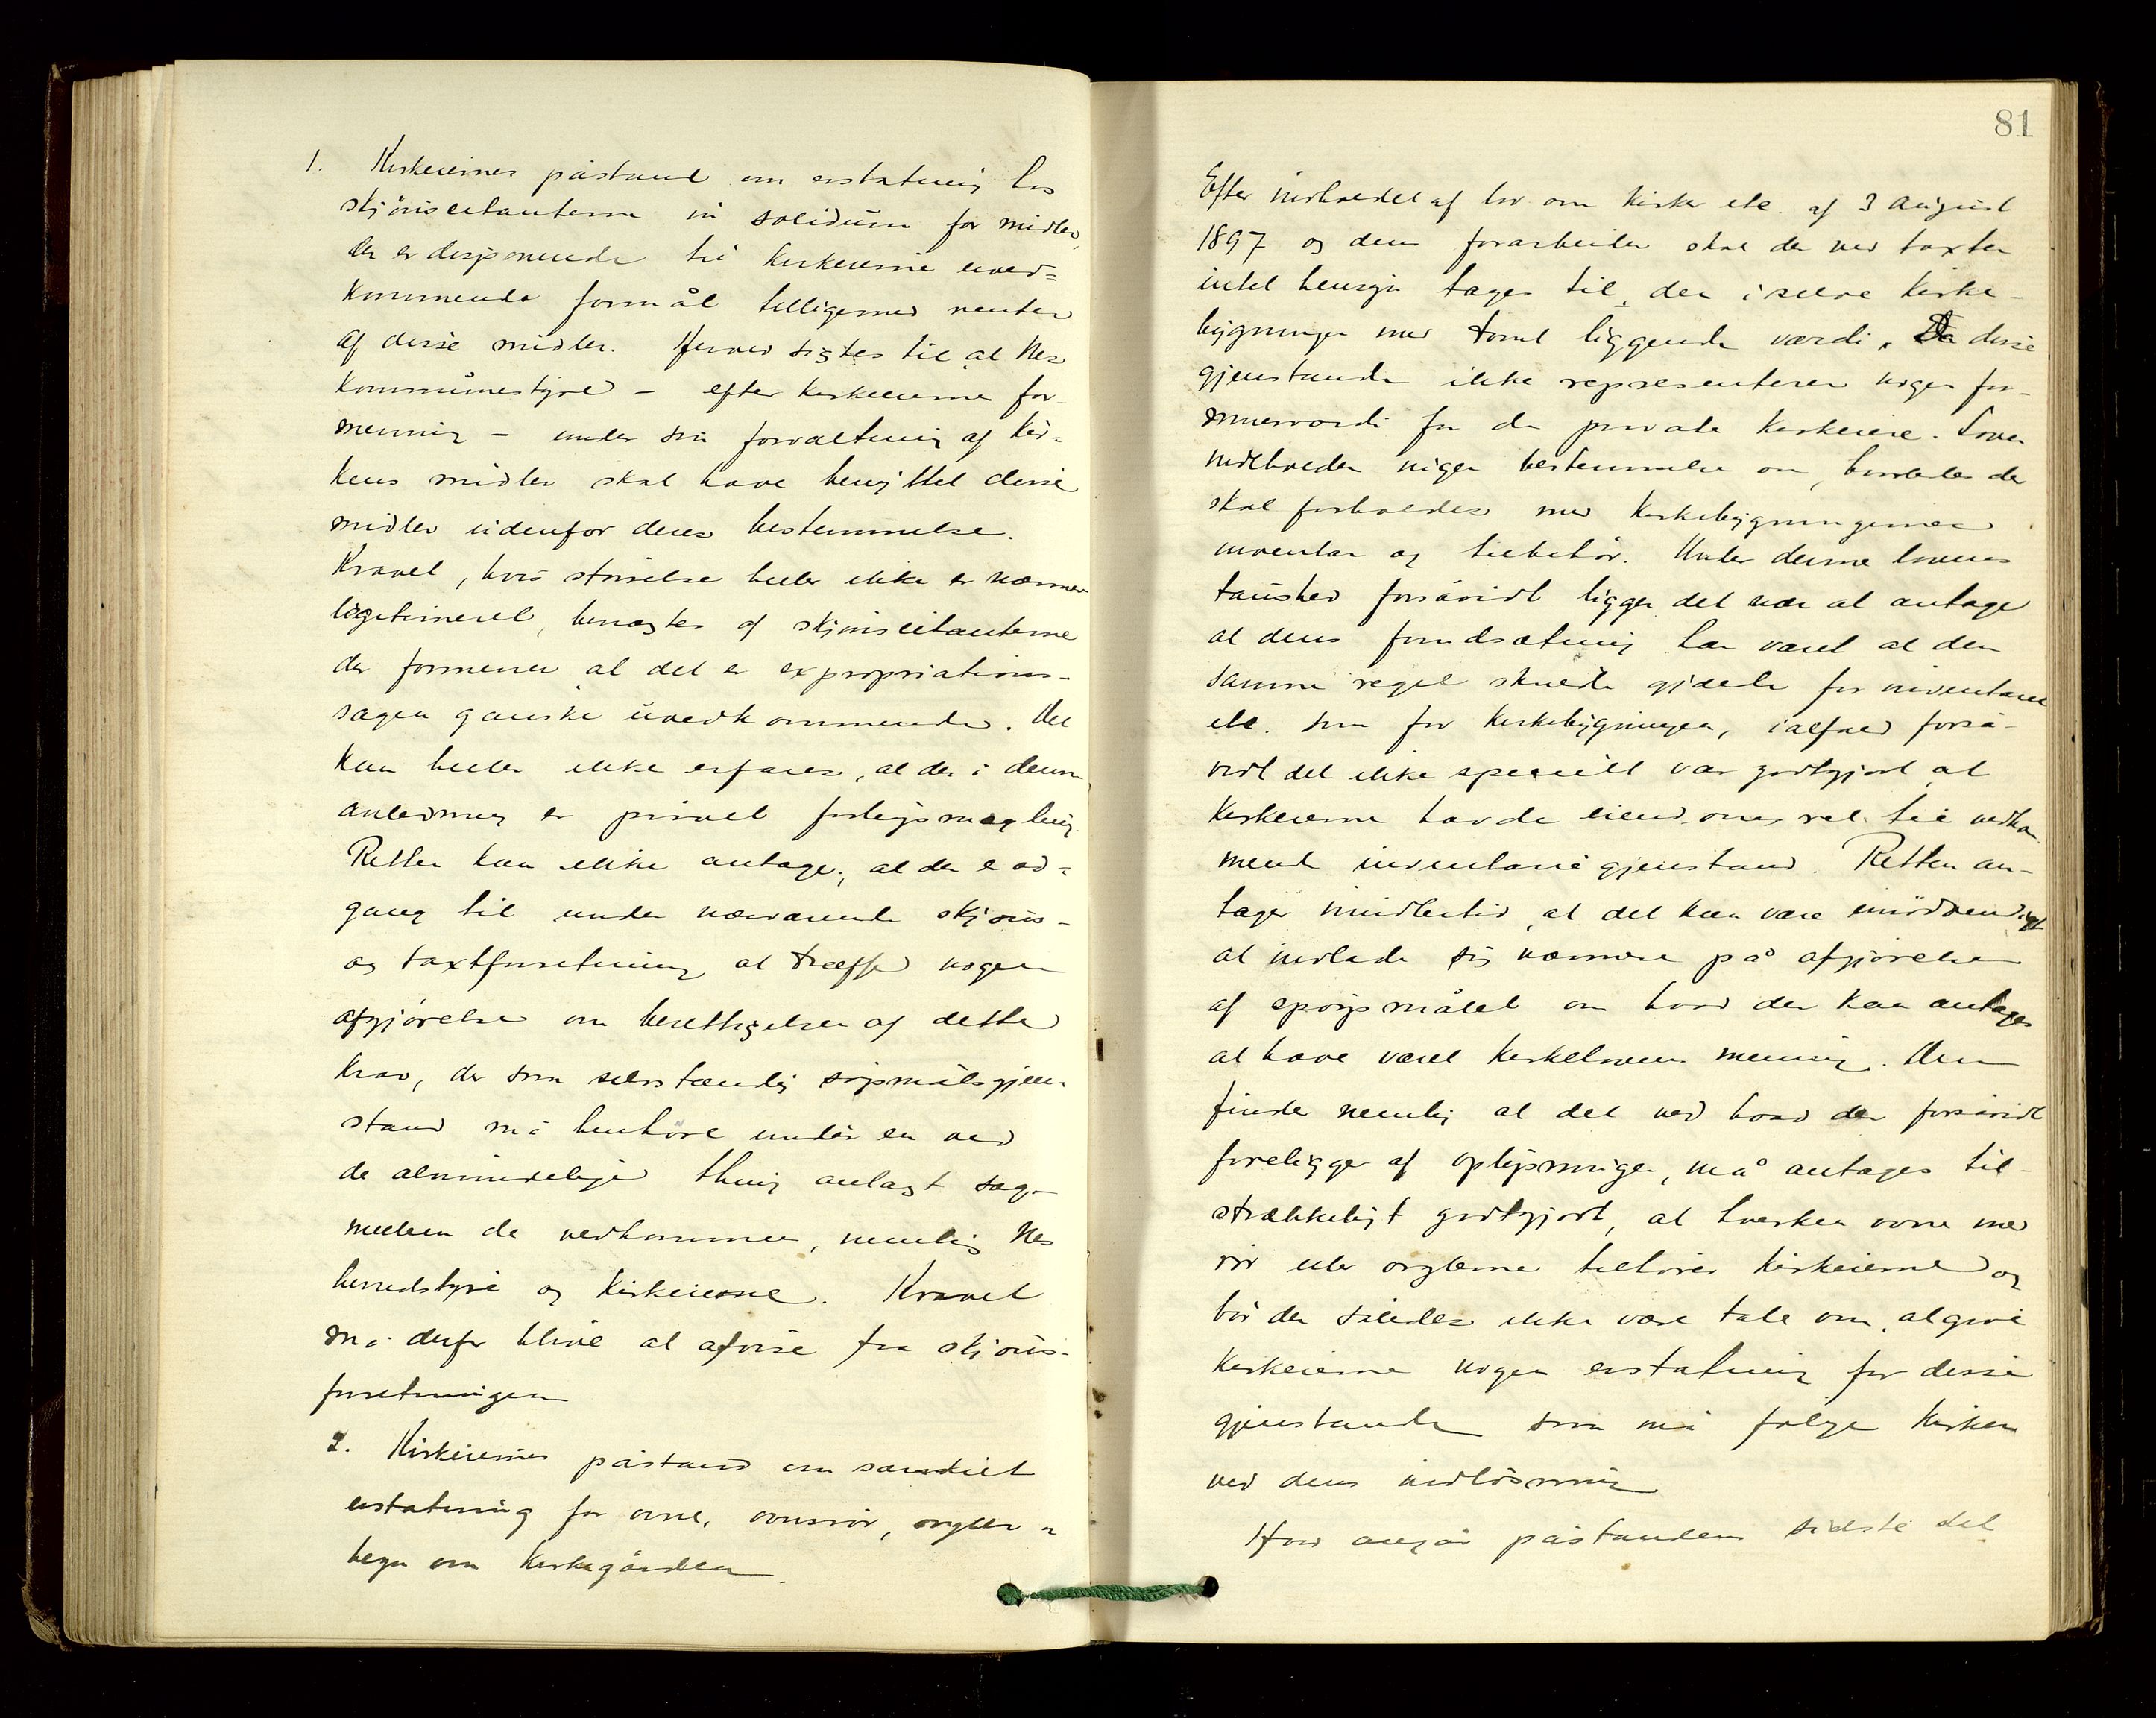 1. Kirkeiernes påstand om erstatning hos
skjönscitanterne in solidum for midler,
der er disponerede til kirkeierne uved=
kommende formål tilligemed renter
af disse midler. Herved sigtes til at Nes
kommunestyre – efter kirkeierne for-
mening – under sin forvaltning af kir-
kens midler skal have benyttet disse
midler udenfor deres bestemmelse.
Kravet, hvis störrelse heller ikke er nærmere
legitimeret, benægtes af skjönscitanterne
der formener at det er expropriations-
sagen ganske uvedkommende. Det
kan heller ikke erfares, at der i denne
anledning er prövet forligsmægling.
Retten kan ikke antage, at der er ad-
gang til under nærværende skjöns-
og taxtforretning at træffe nogen
afgjörelse om berettigelsen af dette
krav, der som selvstændig sögsmålsgjen-
stand må henhöre under en ved
de almindelige thing anlagt sag
mellem de vedkommende, nemlig Nes
herredstyre og kirkeierne. Kravet
må derfor blive at afvise fra skjöns-
forretningen
2. Kirkeiernes påstand om særskilt
erstatning for ovne, ovnsrör, orgler og
hegn om kirkegården.
81
Efter indholdet af lov om kirker etc. af 3 August
1897 og dens forarbeider skal der ved taxten
intet hensyn tages til den i selve kirke-
bygningen med tomt liggende værdi, da disse
gjenstande ikke representerer nogen for-
mueværdi for de private kirkeiere. Loven
indeholder ingen bestemmelse om, hvorledes der
skal forholdes med kirkebygningernes
inventar og tilbehör. Under denne lovens
taushed forsåvidt ligger det nær at antage
at dens forudsætning har været at den
samme regel skulde gjælde for inventaret
etc. som for kirkebygningen, ialfald forså-
vidt det ikke specielt var godtgjort at
kirkeierne havde eiendomsret til vedkom-
mende inventariegjenstand. Retten an-
tager imidlertid, at det kan være unödvendigt
at indlade sig nærmere på afgjörelsen
af spörgsmålet om hvad der kan antages
at have været kirkelovens mening. Den
finder nemlig at det ved hvad der forsåvidt
foreligger af oplysninger, må antages til-
strækkeligt godtgjort, at hverken ovne med
rör eller orglerne tilhörer kirkeierne og
bör der således ikke være tale om at give
kirkeierne nogen erstatning for disse
gjenstande som må fölge kirken
ved dens indlösning
Hvad angår påstandens sidste del